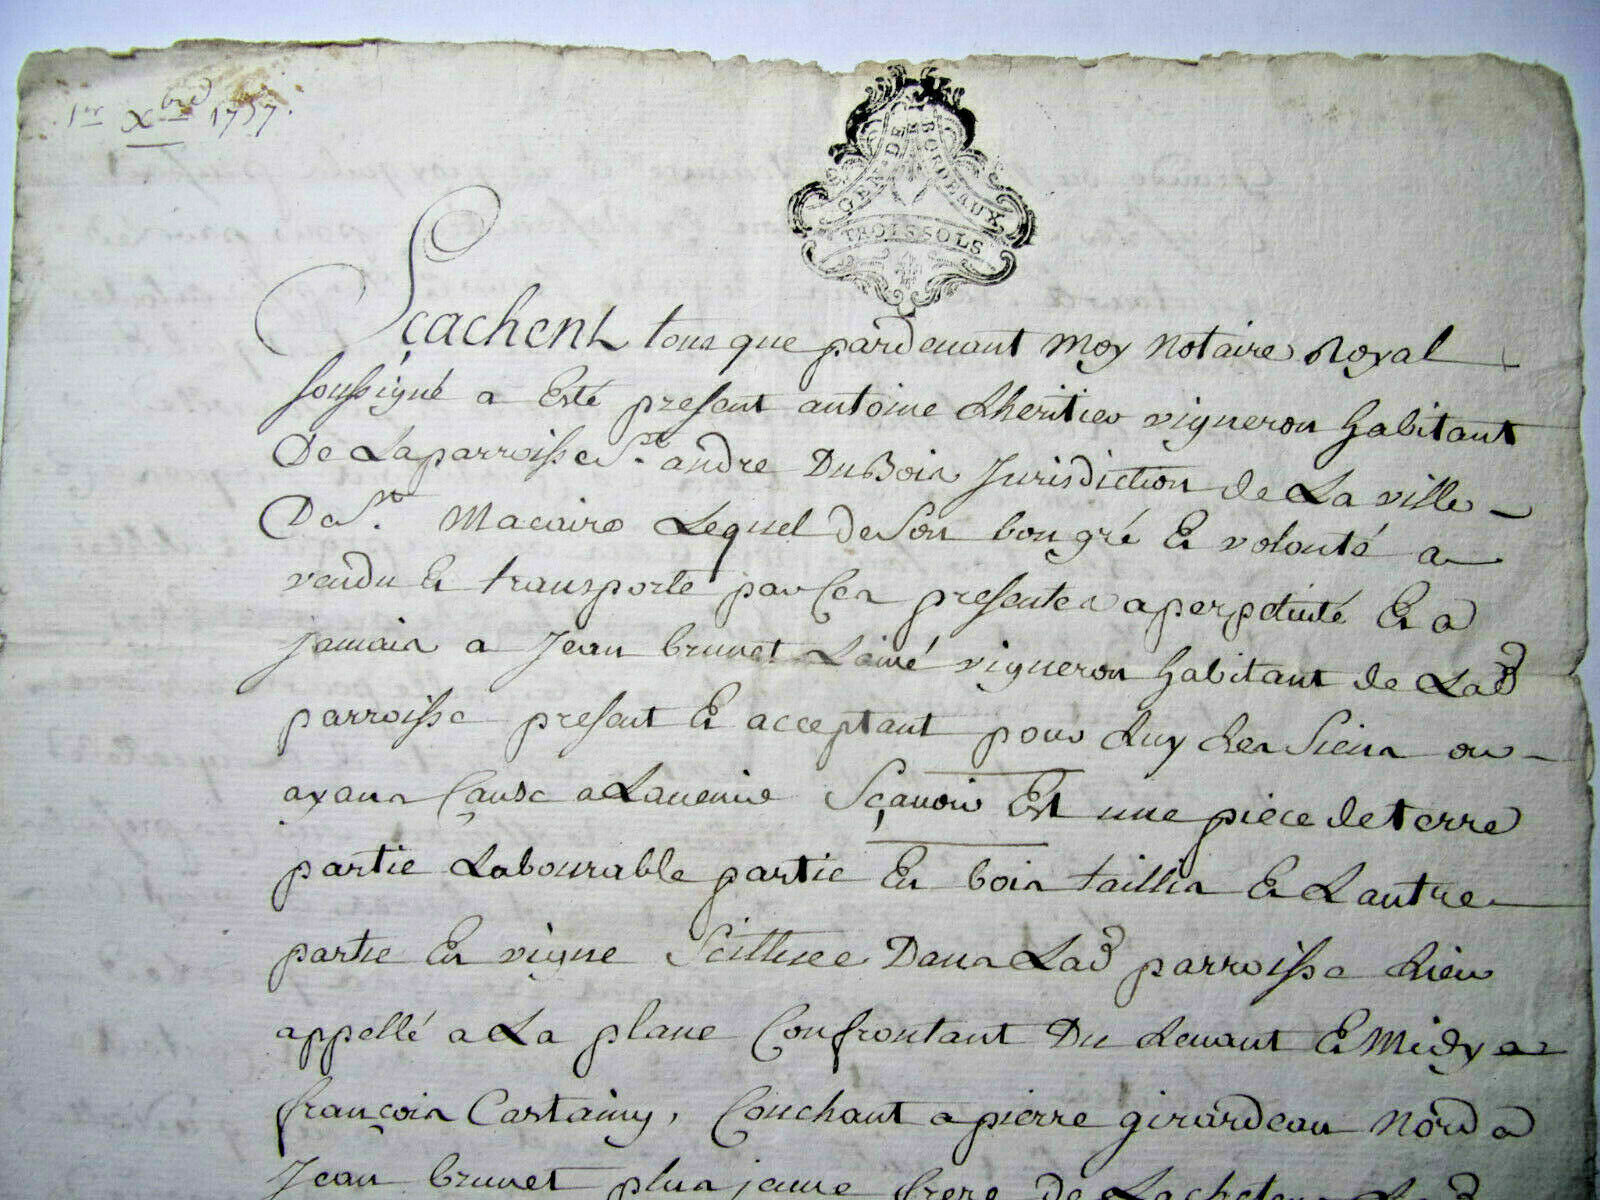 1er Xbre 1757.
GEN. DE BORDEAUX
TROIS SOLS
Sçachent tous que pardevant moy notaire Royal
soussigné a Esté present antoine Lheritier vigneron habitant
De Laparroisse St. andre DuBois Jurisdiction de La ville
De St. Macaire Lequel de Son bon gré Et volonté a
vendu Et transporté par Ces presentes a perpetuité Et a
jamais a Jean brunet Lainé vigneron habitant de Lad
parroisse present Et acceptant pour Luy Les Siens ou
ayans Cause a Lavenir Sçavoir Est une piece de terre
partie Labourable partie En bois taillis Et Lautre
partie En vigne Scittuee Dans Lad parroisse Lieu
appellé a La plane Confrontant Du Levant Et Midy a
françois Castaing, Couchant a pierre girardeau Nord a
Jean brunet plus jeune frere de Lacheteur Lad